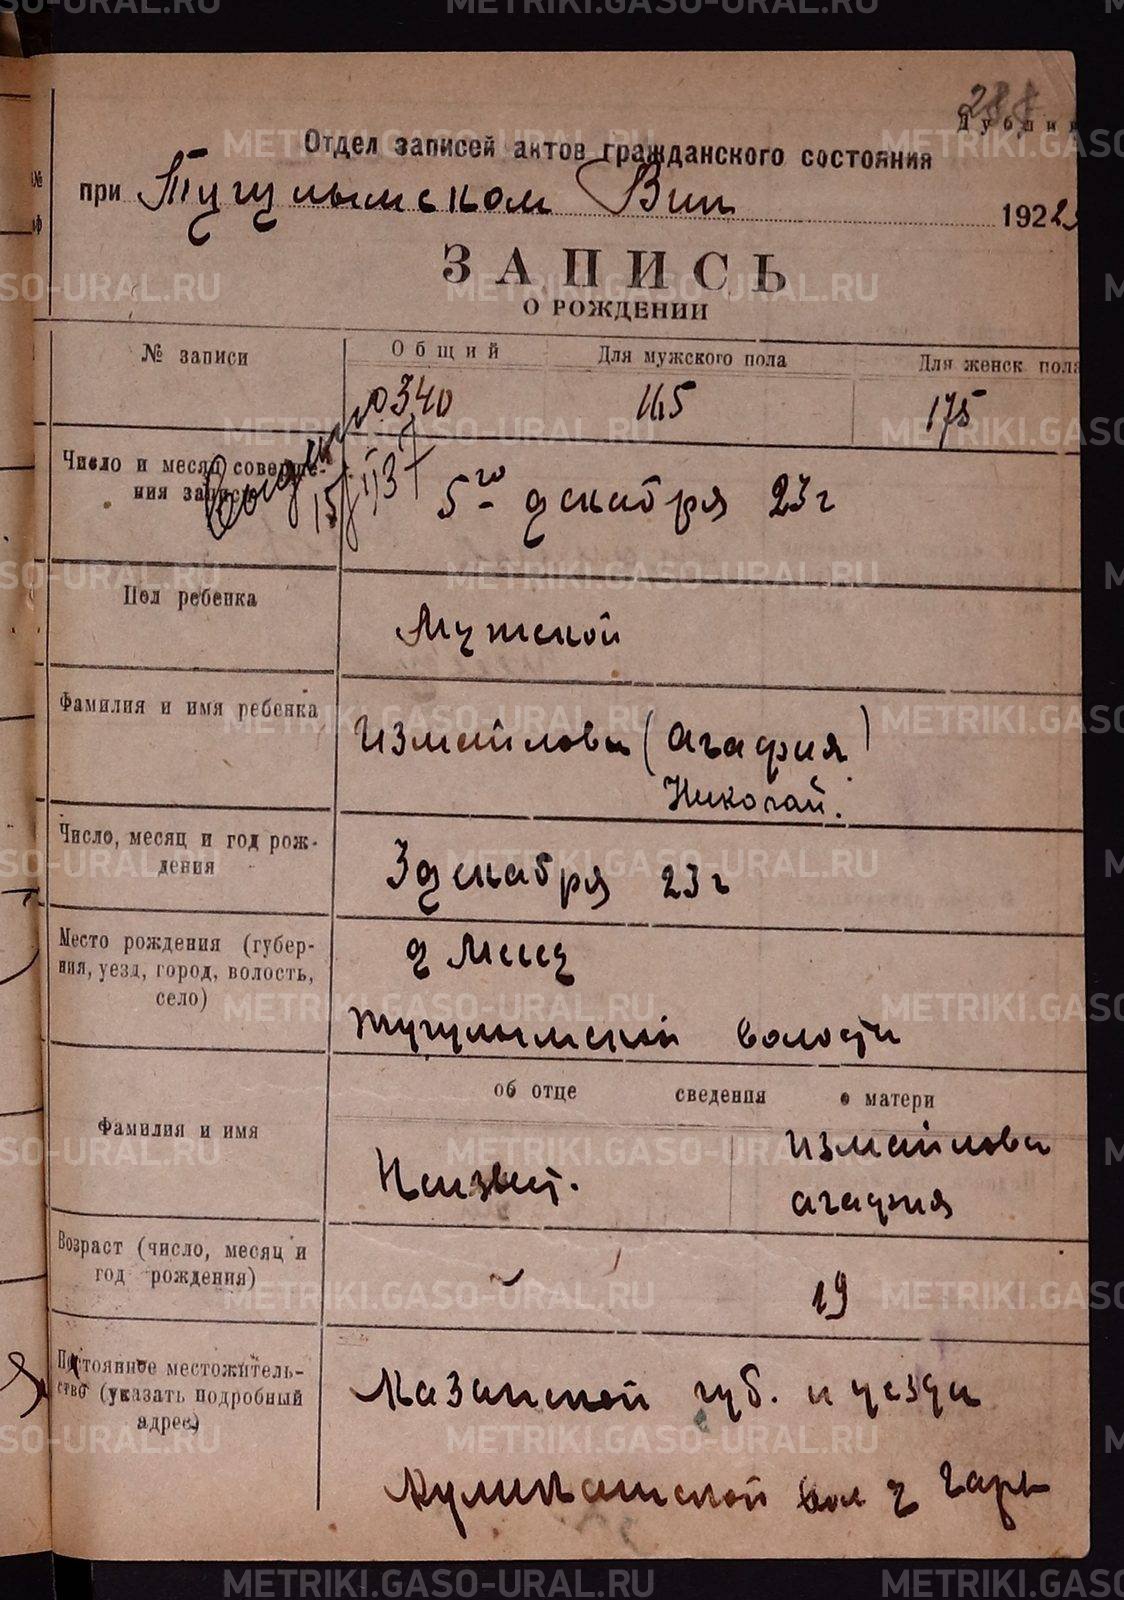 288
Дубли
Отдел записей актов гражданского состояния
при Тугулымском Вик 1923
ЗАПИСЬ
О РОЖДЕНИИ
№ записи
Общий
Для мужского пола
Для женск пола
340
165
175
Выдано
Число и месяц соверше-
ния записи
5го декабря 23 г
Пол ребенка
Мужской
Фамилия и имя ребенка
Измайлова (Агафия)
Николай.
Число, месяц и год рож-
дения
3 декабря 23 г
Место рождения (губер-
ния, уезд, город, волость,
село)
д
Тугулымской волости
об отце сведения о матери
Фамилия и имя
Неизвест.
Измайлова
агафия
Возраст (число, месяц и
год рождения)
19
Постоянное местожитель-
ство (указать подробный
адрес)
Казанской губ. и уезда
вол д Гарь
METRIKI.GASO-URAL.RU